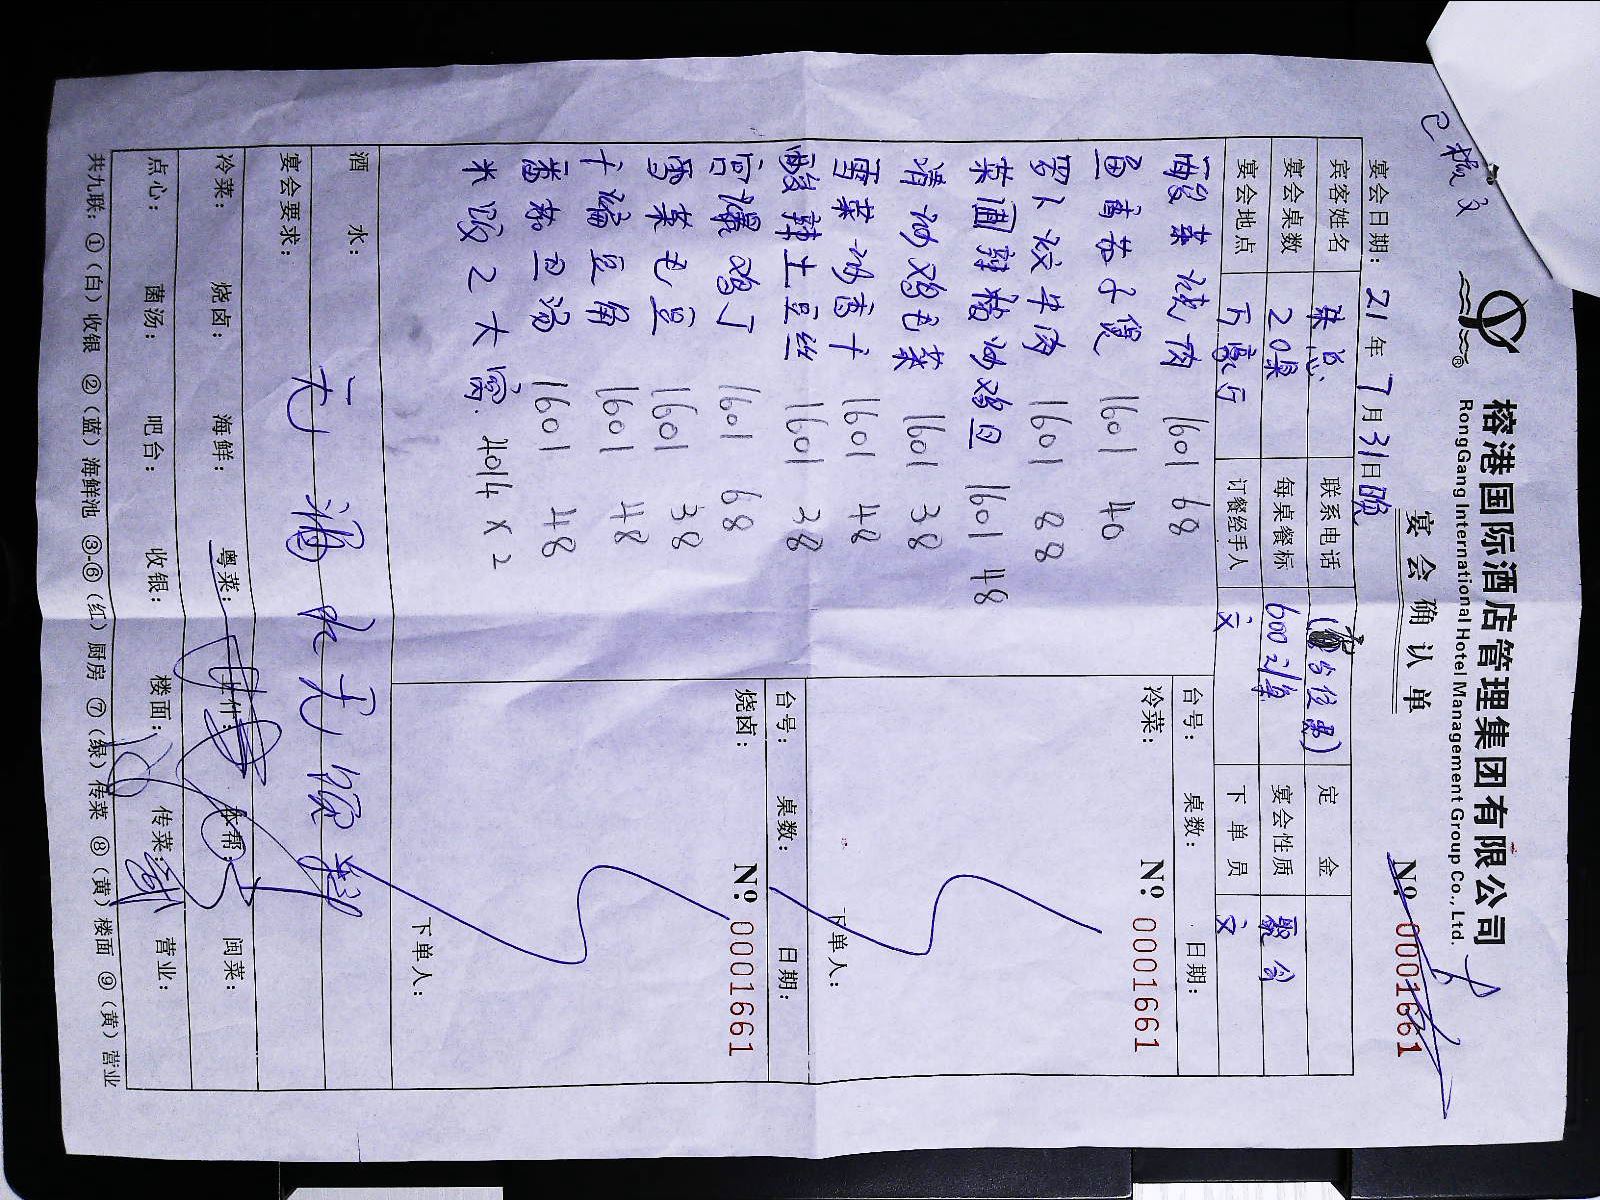 榕港国际酒店管理集团有限公司
RongGang International Hotel Management Group Co., Ltd.
宴会确认单
№ 0001661
宴会日期: 21年7月31日晚
宾客姓名 联系电话 定金
宴会桌数 20桌 每桌餐标 600 宴会性质
宴会地点 万豪厅 订餐经手人 文 下单员 文
酸菜烧肉 1601 68
鱼香茄子煲 1601 40
牛肉 1601 88
菜圃辣椒炒鸡旦 1601 48
清炒鸡毛菜 1601 38
雪菜炒香干 1601 48
酸辣土豆丝 1601 38
宫爆鸡丁 1601 68
雪菜毛豆 1601 38
干煸豆角 1601 48
番茄旦汤 1601 48
米饭2大窝. 4014 x 2
台号: 桌数: 日期:
冷菜: № 0001661
下单人:
台号: 桌数: 日期:
烧卤: № 0001661
下单人:
酒水:
宴会要求:
一元 酒水
冷菜: 烧卤: 海鲜: 粤菜: 本帮: 闽菜:
点心: 菌汤: 吧台: 收银: 楼面: 传菜: 营业:
共九联: ①(白)收银 ②(蓝)海鲜池 ③-⑥(红)厨房 ⑦(绿)传菜 ⑧(黄)楼面 ⑨(黄)营业